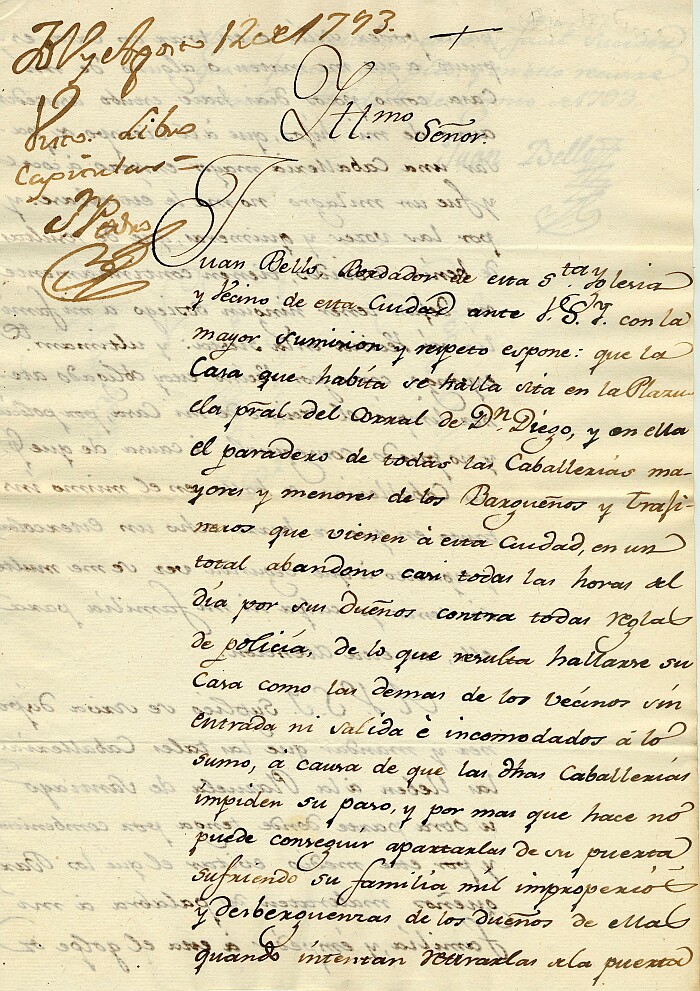 Agosto 12 de 1793.
Visto. Libro
Capitular
Yllmo
Señor.
Juan Bello Bordador de esta Sta Yglesia
y Vecino de esta Ciudad ante V.S.Y. con la
mayor sumision y respeto espone: que la
Casa que habita se halla sita en la Plazu-
ela pral del Corral de Dn Diego, y en ella
el paradero de todas las Caballerias ma-
yores y menores de los Bargueños y Trafi-
neros que vienen à esta Ciudad, en un
total abandono casi todas las horas del
dia por sus dueños contra todas reglas
de policia, de lo que resulta hallarse su
Casa como las demas de los vecinos sin
entrada ni salida è incomodados à lo
sumo, à causa de que las dhas Caballerias
impiden su paso, y por mas que hace no
puede conseguir apartarlas de su puerta
sufriendo su familia mil improperios
y desberguenzas de los dueños de ellas
quando intentan retirarlas de la puerta